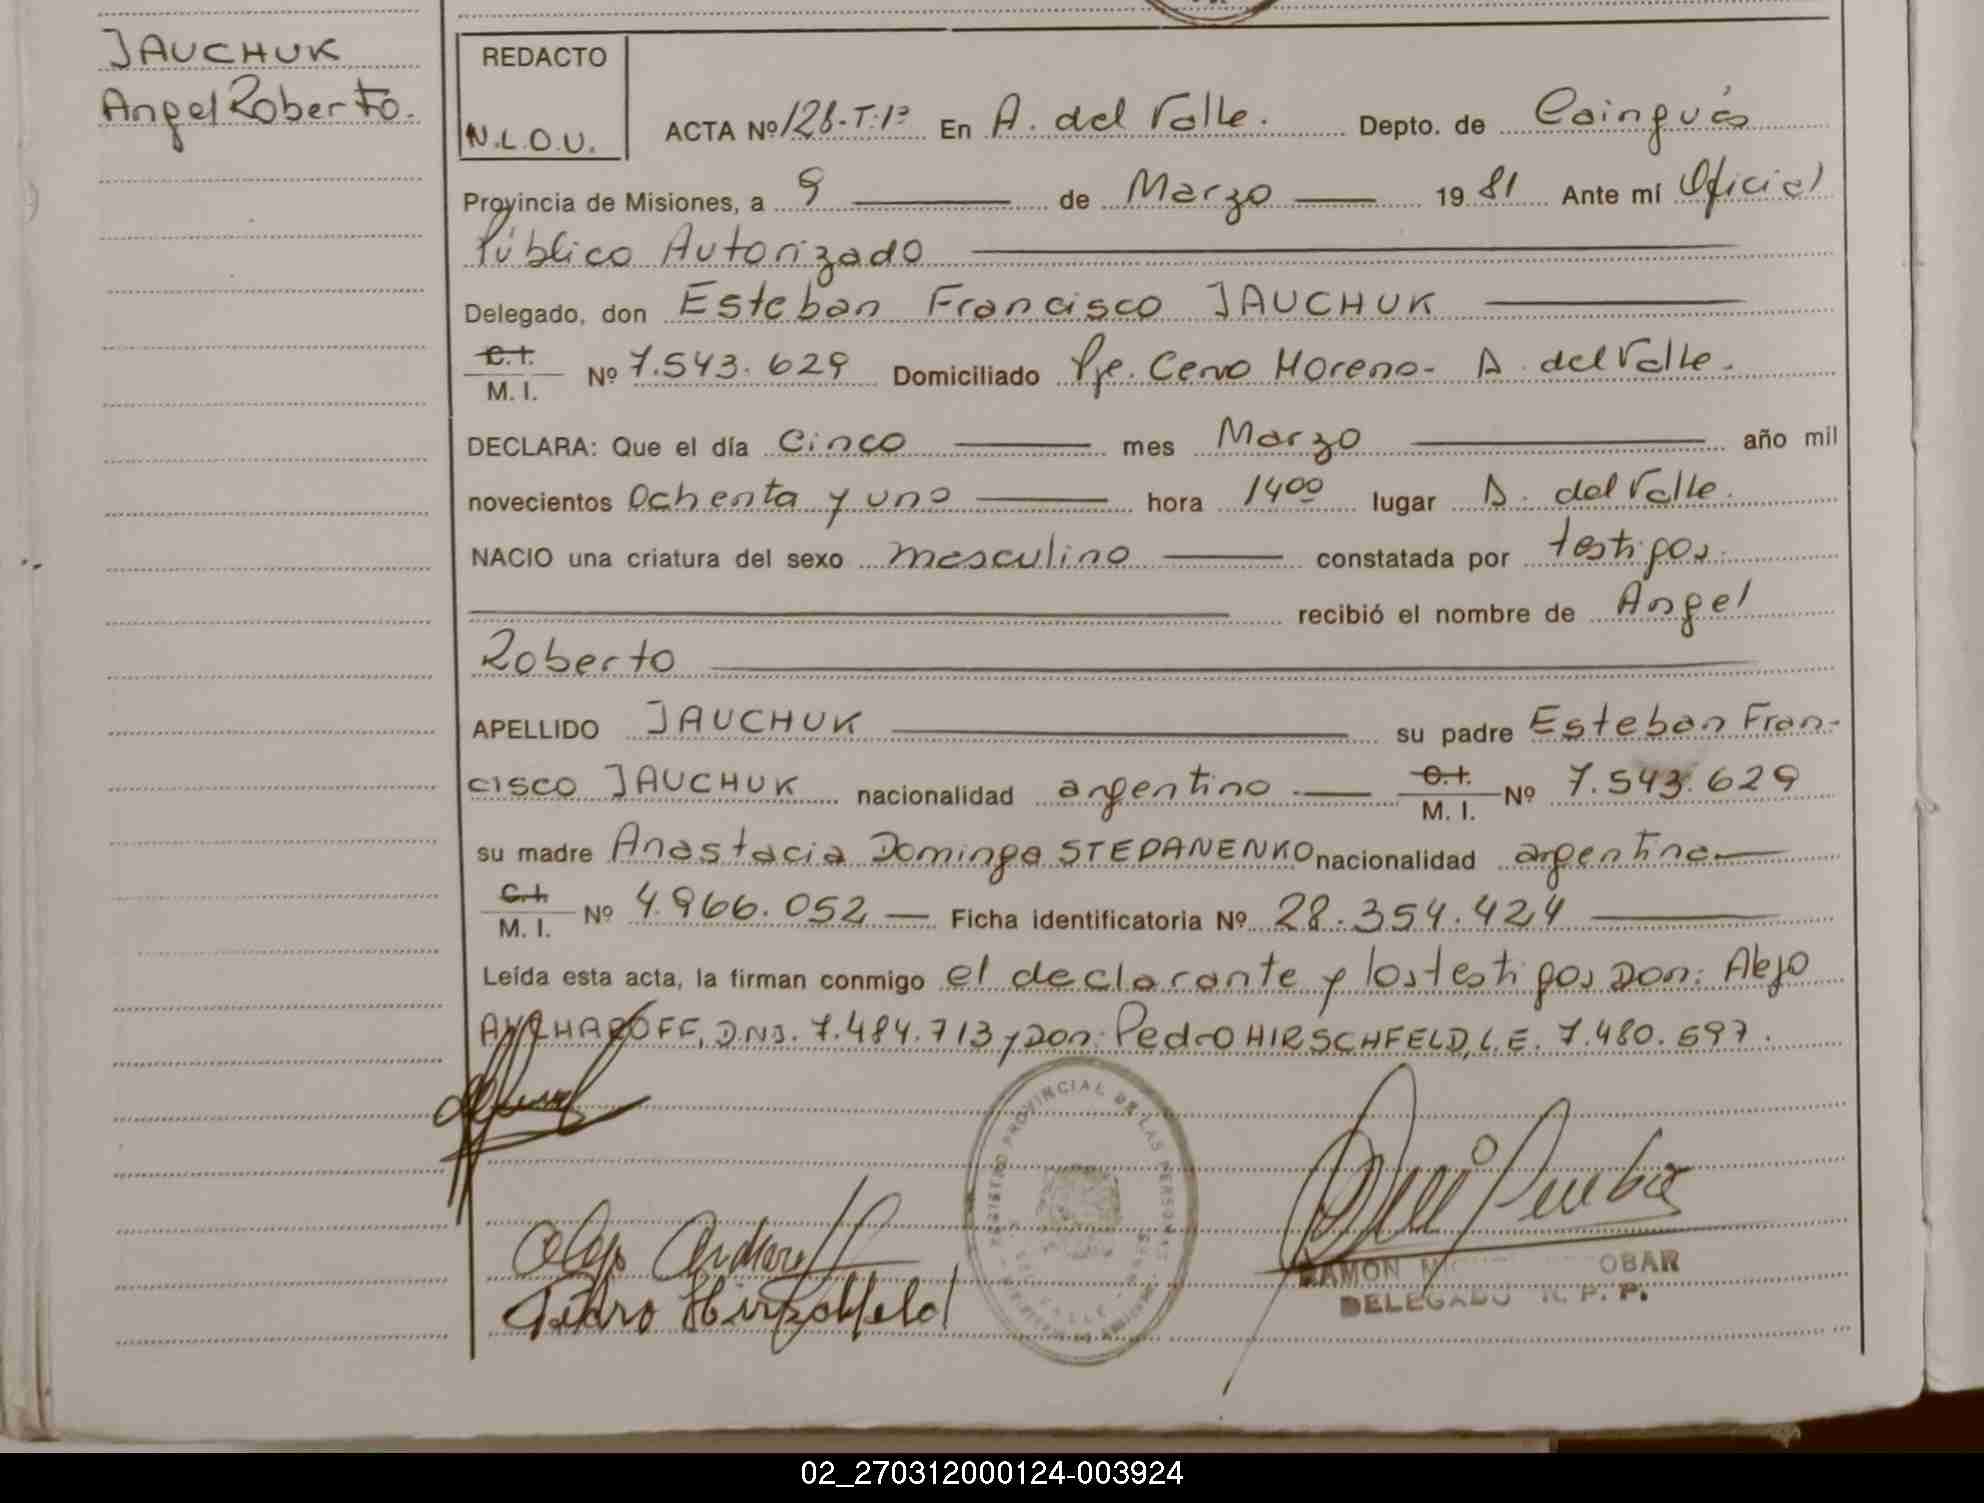 JAUCHUK
Angel Roberto.
REDACTO
N.L.O.U.
ACTA Nº 128-T·1º En A. del Valle. Depto. de Cainguás
Provincia de Misiones, a 9 de Marzo 1981 Ante mí Oficial
Público Autorizado
Delegado, don Esteban Francisco JAUCHUK
C.I. M. I. Nº 7.543.629 Domiciliado Pje. Cerro Moreno- A. del Valle.
DECLARA: Que el día Cinco mes Marzo año mil
novecientos Ochenta y uno hora 14⁰⁰ lugar A. del Valle.
NACIO una criatura del sexo masculino constatada por testigos.
recibió el nombre de Angel
Roberto
APELLIDO JAUCHUK su padre Esteban Fran-
cisco JAUCHUK nacionalidad argentino C.I. M. I. Nº 7.543.629
su madre Anastacia Dominga STEPANENKO nacionalidad argentina
C.I. M. I. Nº 4.966.052 Ficha identificatoria Nº 28.354.424
Leída esta acta, la firman conmigo el declarante y los testigos Don: Alejo
D.N.I. 7.484.713 y Don: Pedro HIRSCHFELD, L.E. 7.480.697.
REGISTRO PROVINCIAL DE LAS PERSONAS
Pedro Hirschfeld
RAMON OBAR
DELEGADO R. P. P.
02_270312000124-003924